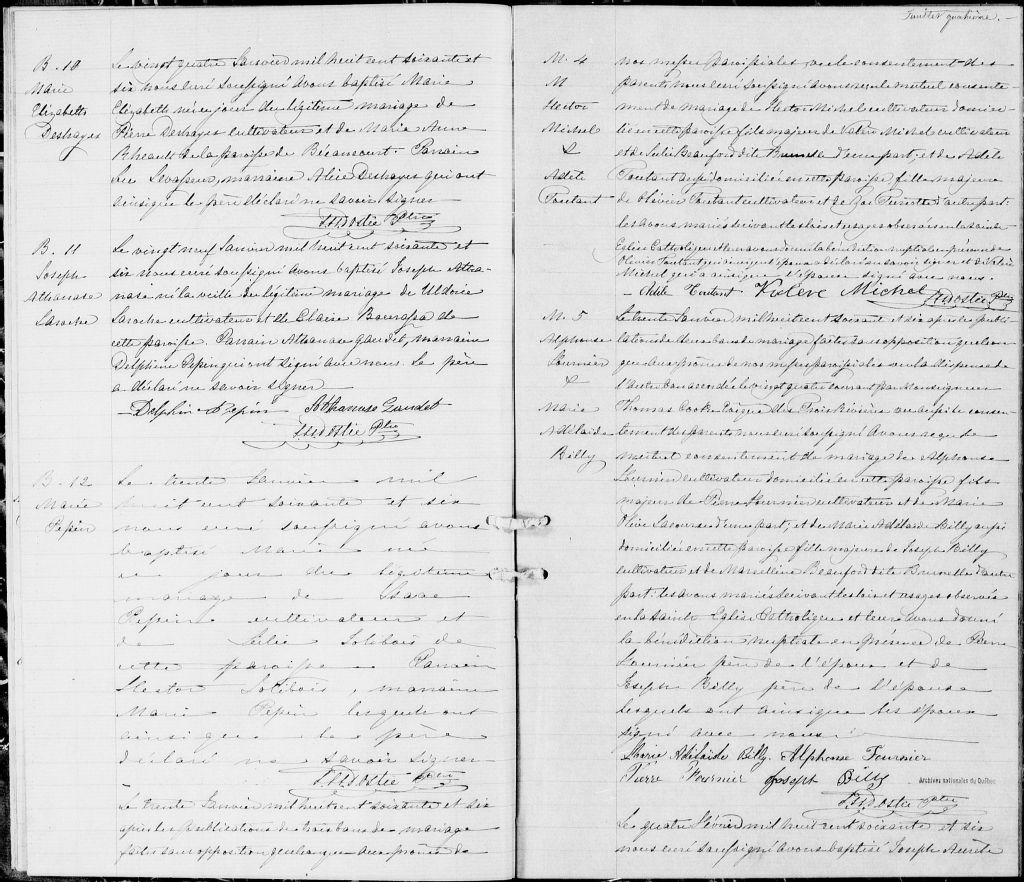 B. 10
Marie
Elizabeth
Deshayes
Le vingt quatre Janvier mil huit cent soixante et
six nous curé soussigné avons baptisé Marie
Elizabeth née ce jour du légitime mariage de
Pierre Deshayes cultivateur et de Marie Anne
Rheault de la paroisse de Bécancourt. Parrain
Luc Levasseur, marraine Alice Deshayes qui ont
ainsi que le père déclaré ne savoir signer
Ptre
B. 11
Joseph
Athanase
Laroche
Le vingt neuf Janvier mil huit cent soixante et
six nous curé soussigné avons baptisé Joseph Atha-
nase né la veille du légitime mariage de
Laroche cultivateur et de Elaise Bourgea de
cette paroisse. Parrain Athanase Gaudet, marraine
Delphine Pepin qui ont signé avec nous. Le père
a déclaré ne savoir signer
Delphine Pepin Athanase Gaudet
Ptre
B. 12
Marie
Pepin
Le trente Janvier mil
huit cent soixante et six
nous curé soussigné avons
baptisé Marie née
ce jour du légitime
mariage de Isaac
Pepin cultivateur et
de Lélie Jolibois de
cette paroisse. Parrain
Hector Jolibois, marraine
Marie Pepin lesquels ont
ainsi que le père
déclaré ne savoir signer
Ptre
Le trente Janvier mil huit cent soixante et six
après les publications de trois bans de mariage
faites sans opposition quelconque aux prônes de
Feuillet quatrième.
M. 4
M
Hector
Michel
&
Adele
Toutant
nos messes paroissiales avec le consentement des
parents nous curé soussigné avons reçu le mutuel consente-
ment de mariage de Hector Michel cultivateur domici-
lié en cette paroisse fils majeur de Valère Michel cultivateur
et de Julie Beaufort dite Brunelle d'une part; et de Adele
Toutant aussi domiciliée en cette paroisse fille majeure
de Olivier Toutant cultivateur et de Zoé Turcotte d'autre part:
les avons mariés suivant les lois et usages observés en la sainte
Eglise Catholique et leur avons donné la bénédiction nuptiale en présence de
Olivier Toutant père de l'épouse qui a déclaré ne savoir signer et de Valère
Michel qui a ainsi que l'épouse signé avec nous.
Adele Toutant Valère Michel Ptre
M. 5
Alphonse
Fournier
&
Marie
Adelaide
Billy
Le trente Janvier mil huit cent soixante et six après la publi-
cation de deux bans de mariage faites sans opposition quelcon-
que aux prônes de nos messes paroissiales vu la dispense de
l'autre ban accordée le vingt quatre courant par Monseigneur
Thomas Cooke Evêque des Trois Rivières avec le conse-
tement des parents nous curé soussigné avons reçu le
mutuel consentement de mariage de Alphonse
Fournier cultivateur domicilié en cette paroisse fils
majeur de Pierre Fournier cultivateur et de Marie
Olive Lacourse d'une part; et de Marie Adelaide Billy aussi
domiciliée en cette paroisse fille majeure de Joseph Billy
cultivateur et de Marcelline Beaufort dite Brunelle d'autre
part: les avons mariés suivant les lois et usages observés
en la sainte Eglise Catholique et leur avons donné
la bénédiction nuptiale en présence de Pierre
Fournier père de l'époux et de
Joseph Billy père de l'épouse
lesquels ont ainsi que les époux
signé avec nous
Marie Adelaide Billy Alphonse Fournier
Pierre Fournier Joseph Billy
Archives nationales du Québec
Ptre
Le quatre Février mil huit cent soixante et six
nous curé soussigné avons baptisé Joseph